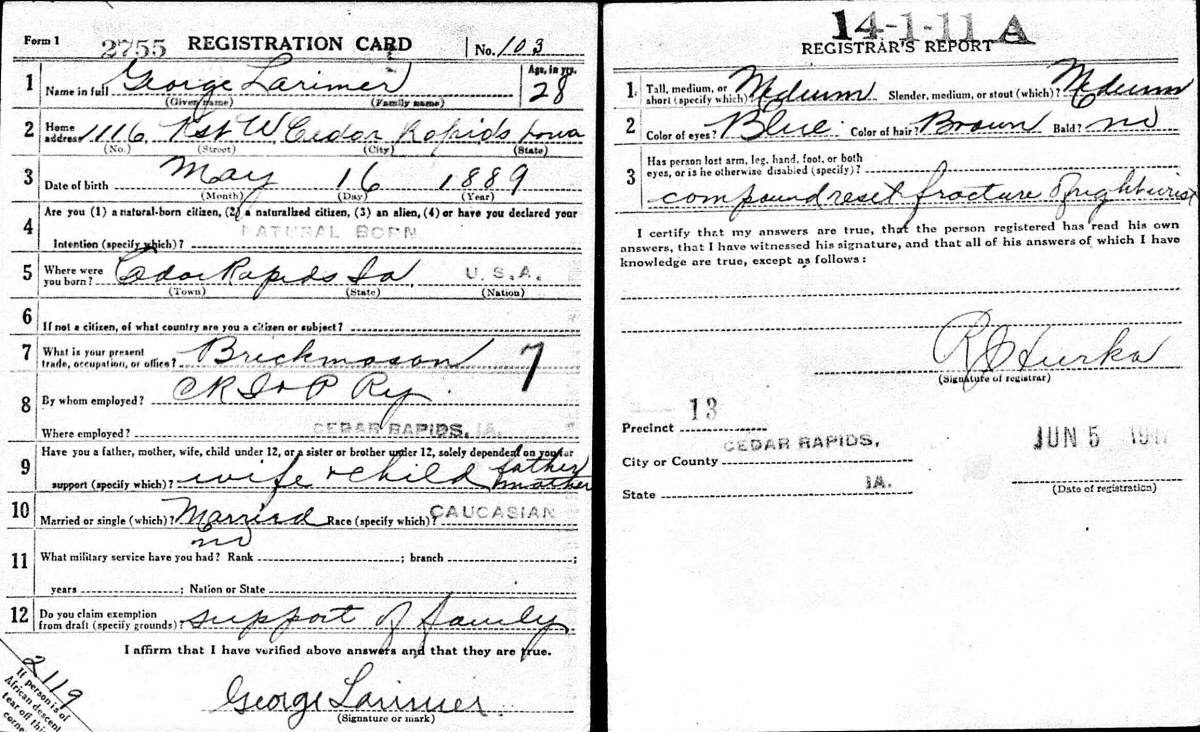 Form 1 2755 REGISTRATION CARD No. 103
1 Name in full George Larimer Age, in yrs. 28
(Given name) (Family name)
2 Home address 1116, K st W Cedar Rapids Iowa
(No.) (Street) (City) (State)
3 Date of birth May 16 1889
(Month) (Day) (Year)
4 Are you (1) a natural-born citizen, (2) a naturalized citizen, (3) an alien, (4) or have you declared your
Intention (specify which)? NATURAL BORN
5 Where were you born? Cedar Rapids Ia U.S.A.
(Town) (State) (Nation)
6 If not a citizen, of what country are you a citizen or subject?
7 What is your present trade, occupation, or office? Brickmason 7
8 By whom employed? C R I & P Ry.
Where employed? CEDAR RAPIDS, IA.
9 Have you a father, mother, wife, child under 12, or a sister or brother under 12, solely dependent on you for
support (specify which)? wife & child father mother
10 Married or single (which)? Married Race (specify which)? CAUCASIAN
no
11 What military service have you had? Rank ; branch ;
years ; Nation or State
12 Do you claim exemption from draft (specify grounds)? support of family
I affirm that I have verified above answers and that they are true.
George Larimer
(Signature or mark)
2119
If person is of
African descent
tear off this
corne
14-1-11 A
REGISTRAR'S REPORT
1 Tall, medium, or short (specify which)? Medium Slender, medium, or stout (which)? Medium
2 Color of eyes? Blue Color of hair? Brown Bald? no
3 Has person lost arm, leg, hand, foot, or both
eyes, or is he otherwise disabled (specify)?
compound reset fracture of right wrist
I certify that my answers are true, that the person registered has read his own
answers, that I have witnessed his signature, and that all of his answers of which I have
knowledge are true, except as follows:
R J Hurka
(Signature of registrar)
Precinct 13
City or County CEDAR RAPIDS,
State IA.
JUN 5 191
(Date of registration)